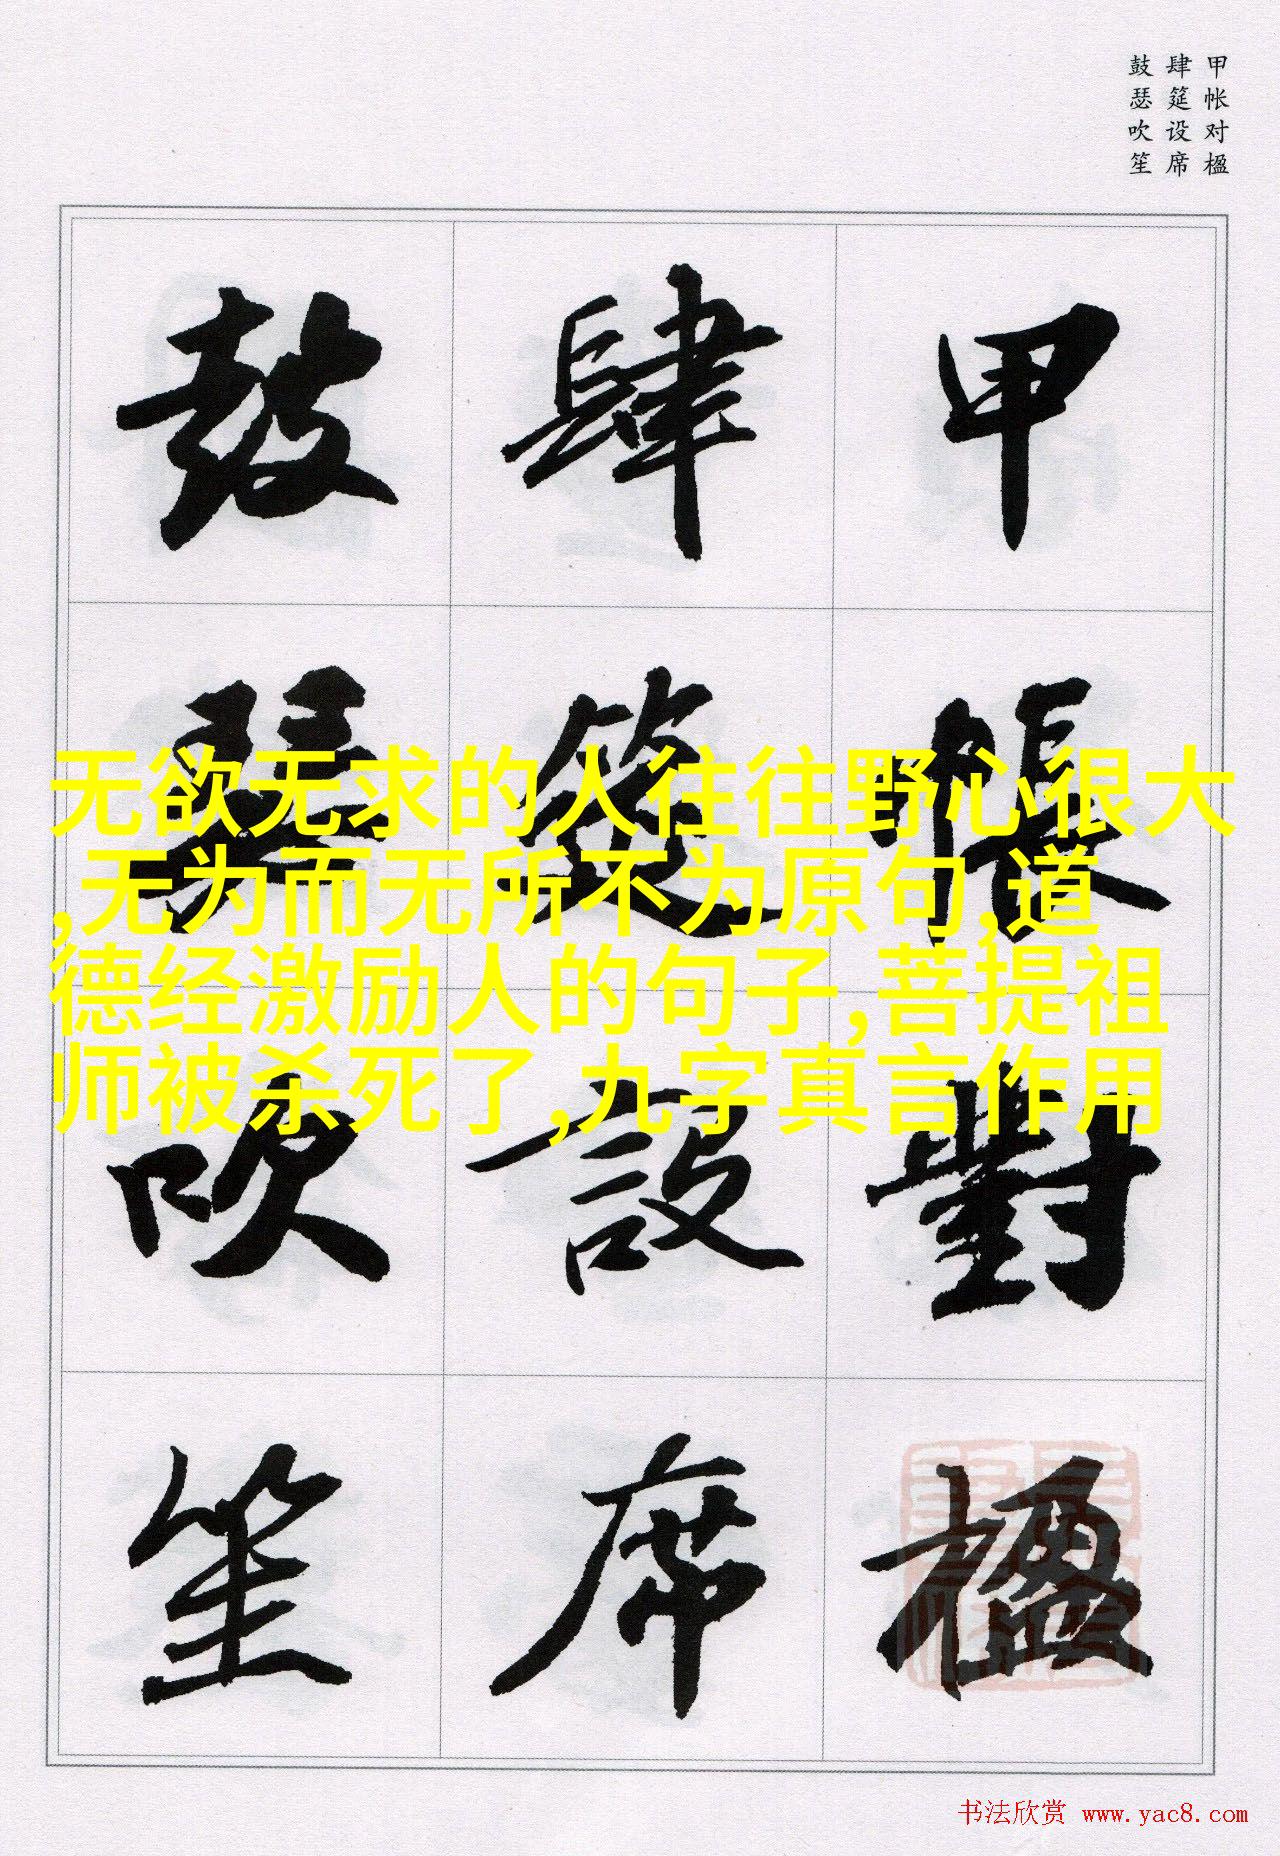 甲帐对楹
肆筵设席
鼓瑟吹笙
甲帳對楹
肆筵設席
鼓瑟吹笙
无欲无求的人往往野心很大
,无为而无所不为原句,道
德经激励人的句子,菩提祖
师被杀死了,九字真言作用
书法欣赏 www.yac8.com